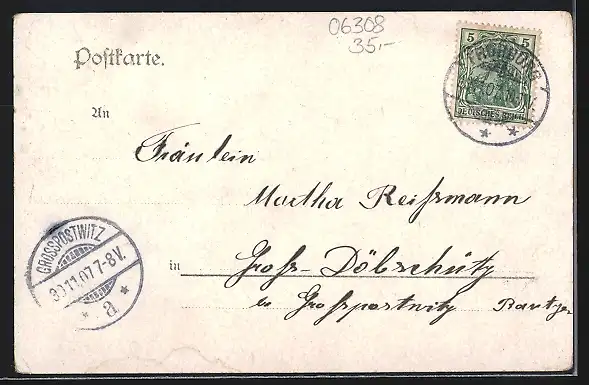 06308
35,-
Postkarte.
5 5
DEUTSCHES REICH
An
Fräulein
Martha Reißmann
in Groß-Döbschütz
Großpostwitz Bautzen
GROSSPOSTWITZ
30.11.07 7-8 V.
* a *